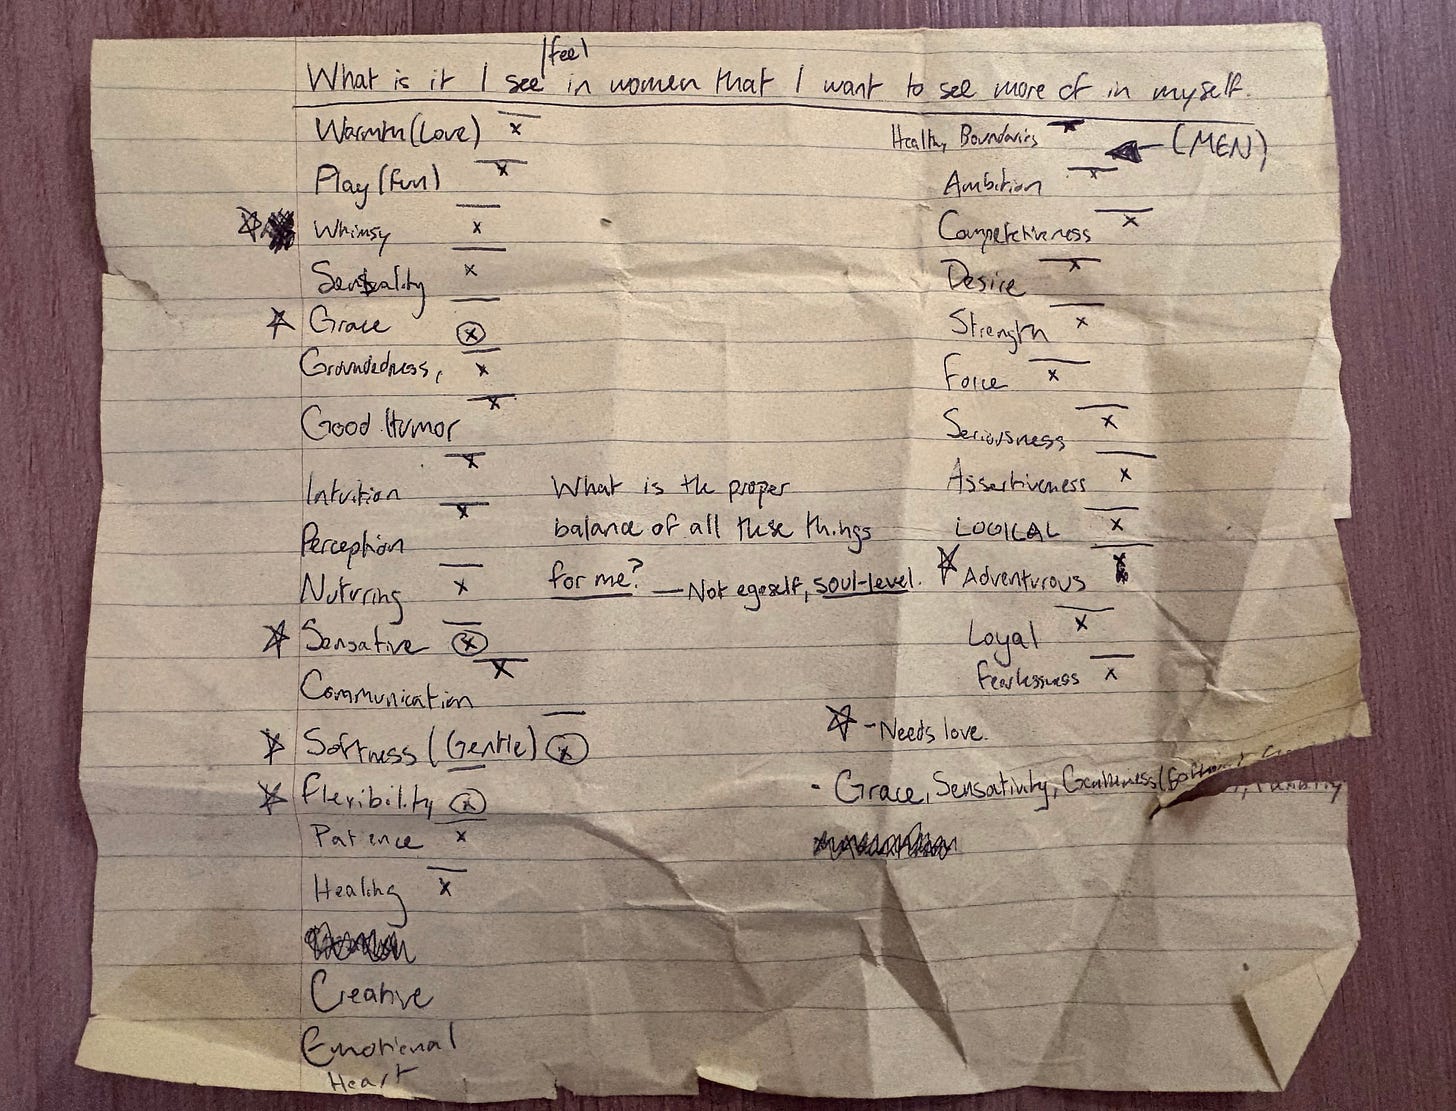 /feel
What is it I see in women that I want to see more of in myself.
Warmth (Love) x
Play (fun) x
Whimsy x
Sensuality x
Grace x
Groundedness, x
Good Humor x
Intuition x
Perception x
Nuturing x
Sensative x
Communication x
Softness (Gentle) x
Flexibility x
Patience x
Healing x
Creative
Emotional
Heart
What is the proper
balance of all these things
for me? — Not egoself, soul-level.
Healthy Boundaries x
(MEN)
Ambition x
Competetiveness x
Desire x
Strength x
Force x
Seriousness x
Assertiveness x
LOGICAL x
Adventurous x
Loyal x
Fearlessness x
☆ - Needs love.
- Grace, Sensativity, Gentleness